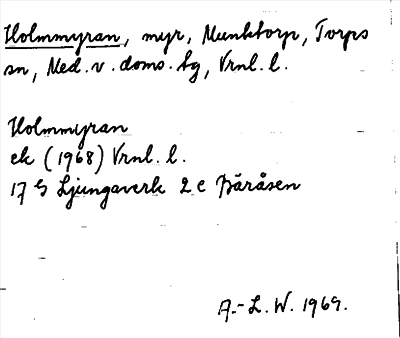 Holmmyran, myr, Munktorp, Torps
sn, Med. v. doms. tg, Vrnl. l.
Holmmyran
ek (1968) Vrnl. l.
17 G Ljungaverk 2 e Bäråsen
A.-L. W. 1969.